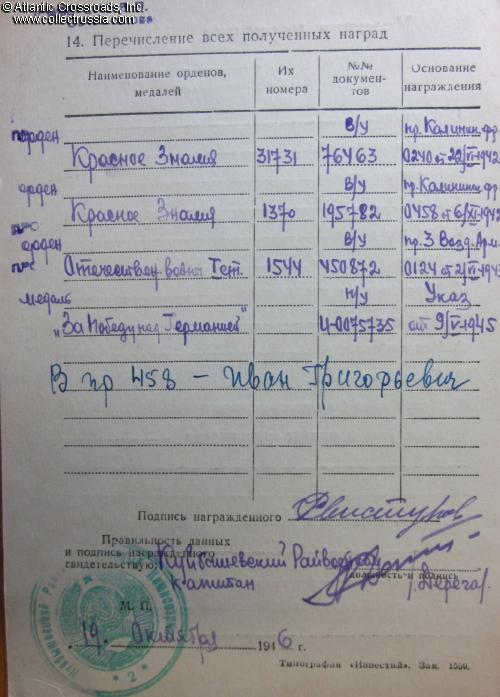 © Atlantic Crossroads, Inc.
www.collectrussia.com
14. Перечисление всех полученных наград
Наименование орденов, медалей Их номера №№ документов Основание награждения
орден В/У пр. Калинин. фр.
Красное Знамя 31731 764463 0240 от 22/VI-1942
орден В/У пр. Калинин. фр.
Красное Знамя 1370 195782 0458 от 6/XI-1942
орден В/У пр. 3 Возд. Арм.
Отечествен. войны I ст. 1544 450872 0124 от 2/VI-1943
медаль п/у Указ
„За Победу над Германией" И-0075735 от 9/V-1945
В пр 458 – Иван Григорьевич
Подпись награжденного
Правильность данных
и подпись награжденного
свидетельствую: Куйбышевский Райвоенком
капитан
должность и подпись
М. П.
19. Октября 1946 г.
Типография «Известий». Зак. 1559.